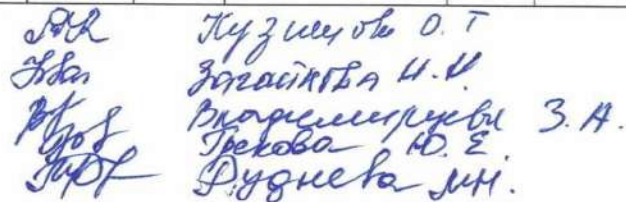 Кузнецова О.Т
Загайнова Н.Н.
Владимирцева З.А.
Грекова Ю.Е.
Руднева М.Н.